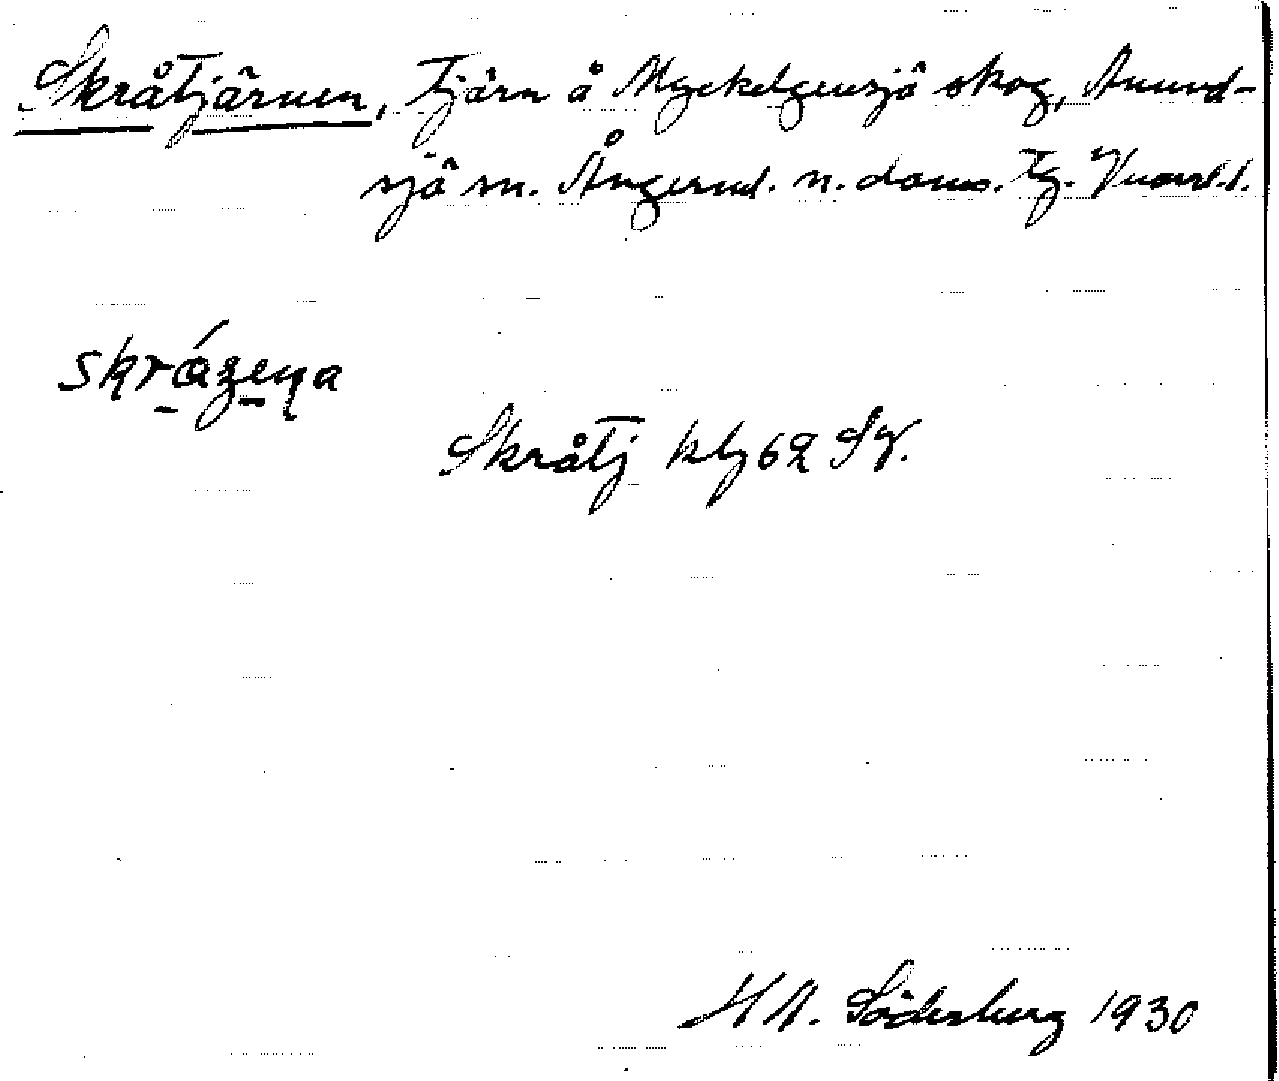 Skråtjärnen, Tjärn å Myckelgensjö skog, Anund-
sjö sn. Ångerml. n. doms. Tg. Västernorrl. l.
Skråtj kbl 62 SV.
H A. Söderberg 1930